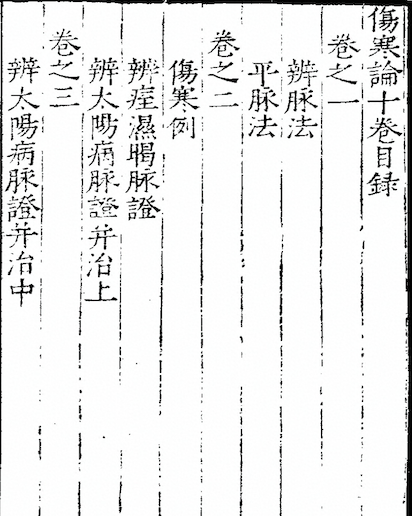 傷寒論十卷目録
卷之一
辨脉法
平脉法
卷之二
傷寒例
辨痓濕暍脉證
辨太陽病脉證并治上
卷之三
辨太陽病脉證并治中